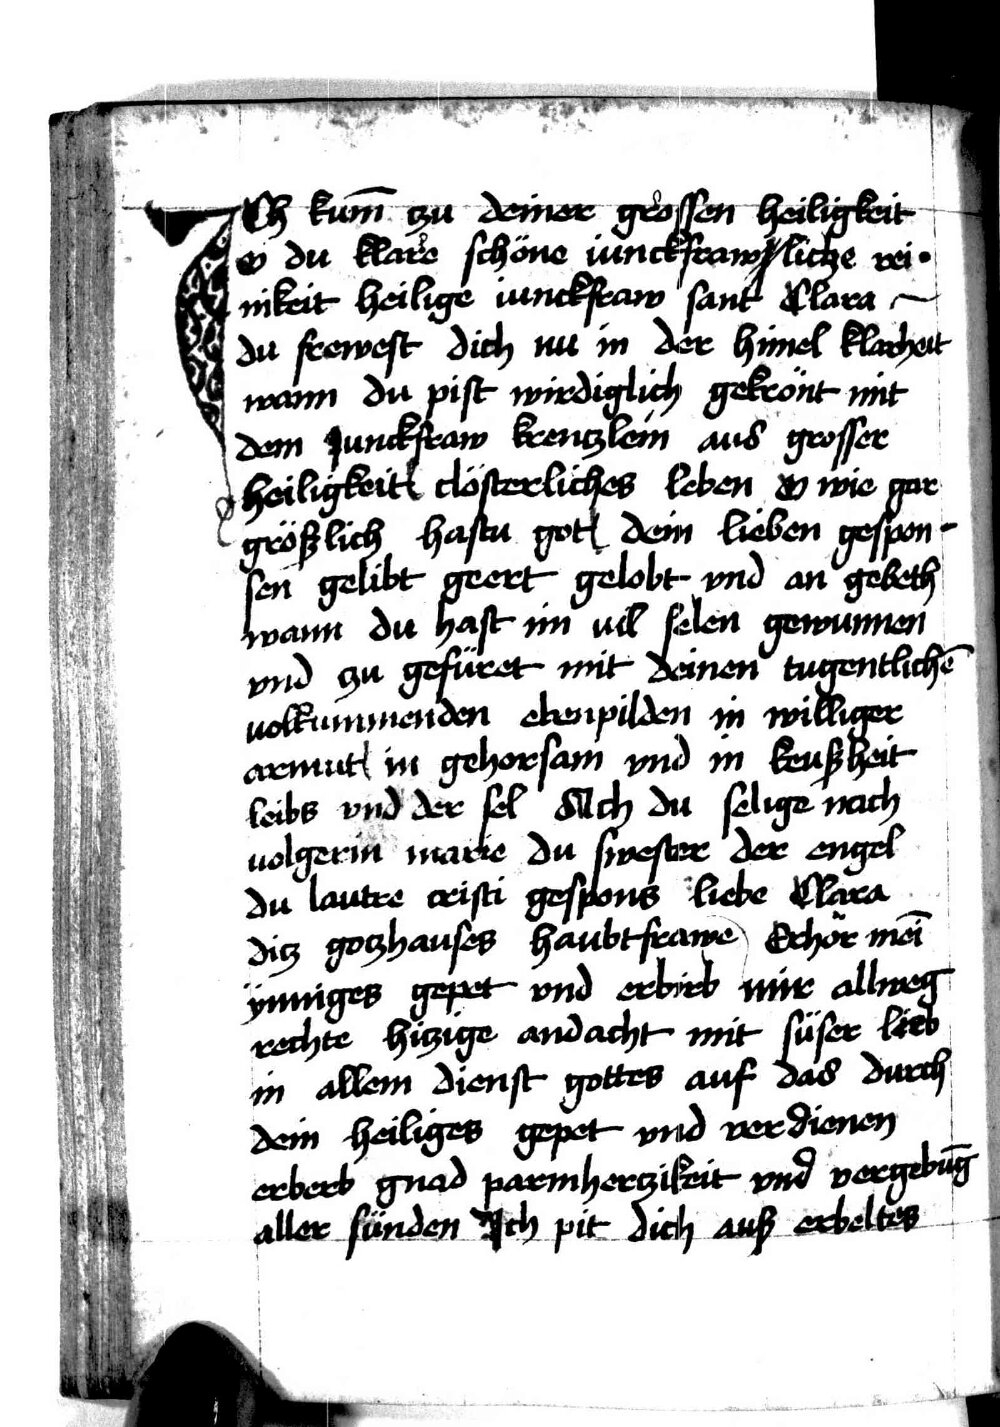 ICh kum̄ tzu deiner grossen heiligkeit
O du klare schöne iunckfrawliche rei-
nikeit heilige iunckfraw sant Clara
du frewest dich nu in der himel klarheit
wann du pist wirdiglich gekrönt mit
dem Junckfraw krentzlein aus grosser
heiligkeit clösterliches leben O wie gar
größlich hastu got dein lieben gespon-
sen gelibt geert gelobt vnd an gebeth
wann du hast im uil selen gewunnen
vnd zu gefüret mit deinen tugentlichē
uolkummenden ebenpilden in williger
armut in gehorsam vnd in keußheit
leibs vnd der sel Ach du selige nach
uolgerin marie du swester der engel
du lautre cristi gespons liebe Clara
ditz gotzhauses haubtfrawe Erhör mei̅
ynniges gepet vnd erbirb mir allweg
rechte hitzige andacht mit süser lieb
in allem dienst gottes auf das durch
dein heiliges gepet vnd verdienen
erberb gnad parmhertzikeit vnd vergebūg
aller sünden Ich pit dich auß erbeltes